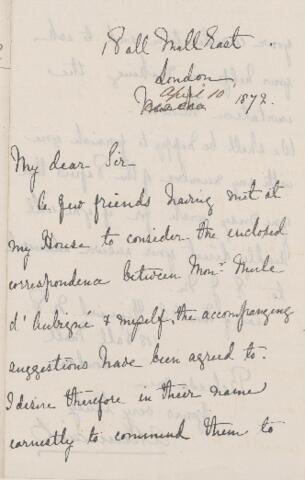 18 Pall Mall East
London
April 10 1872.
My dear Sir-
A few friends having met at
my House to consider the enclosed
correspondence between Monr. Merle
d'Aubigné & myself, the accompanying
suggestions have been agreed to.
I desire therefore in their name
earnestly to commend them to